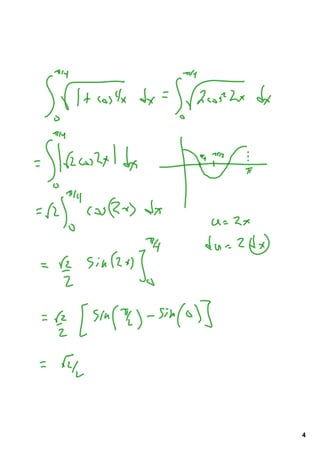 ∫₀^(π/4) √(1 + cos 4x) dx = ∫₀^(π/4) √(2cos² 2x) dx
= ∫₀^(π/4) |√2 cos 2x| dx
π/4 π/2 π
= √2 ∫₀^(π/4) cos(2x) dx
u = 2x
du = 2 dx
= √2/2 sin(2x) ]₀^(π/4)
= √2/2 [ sin(π/2) - sin(0) ]
= √2/2
4